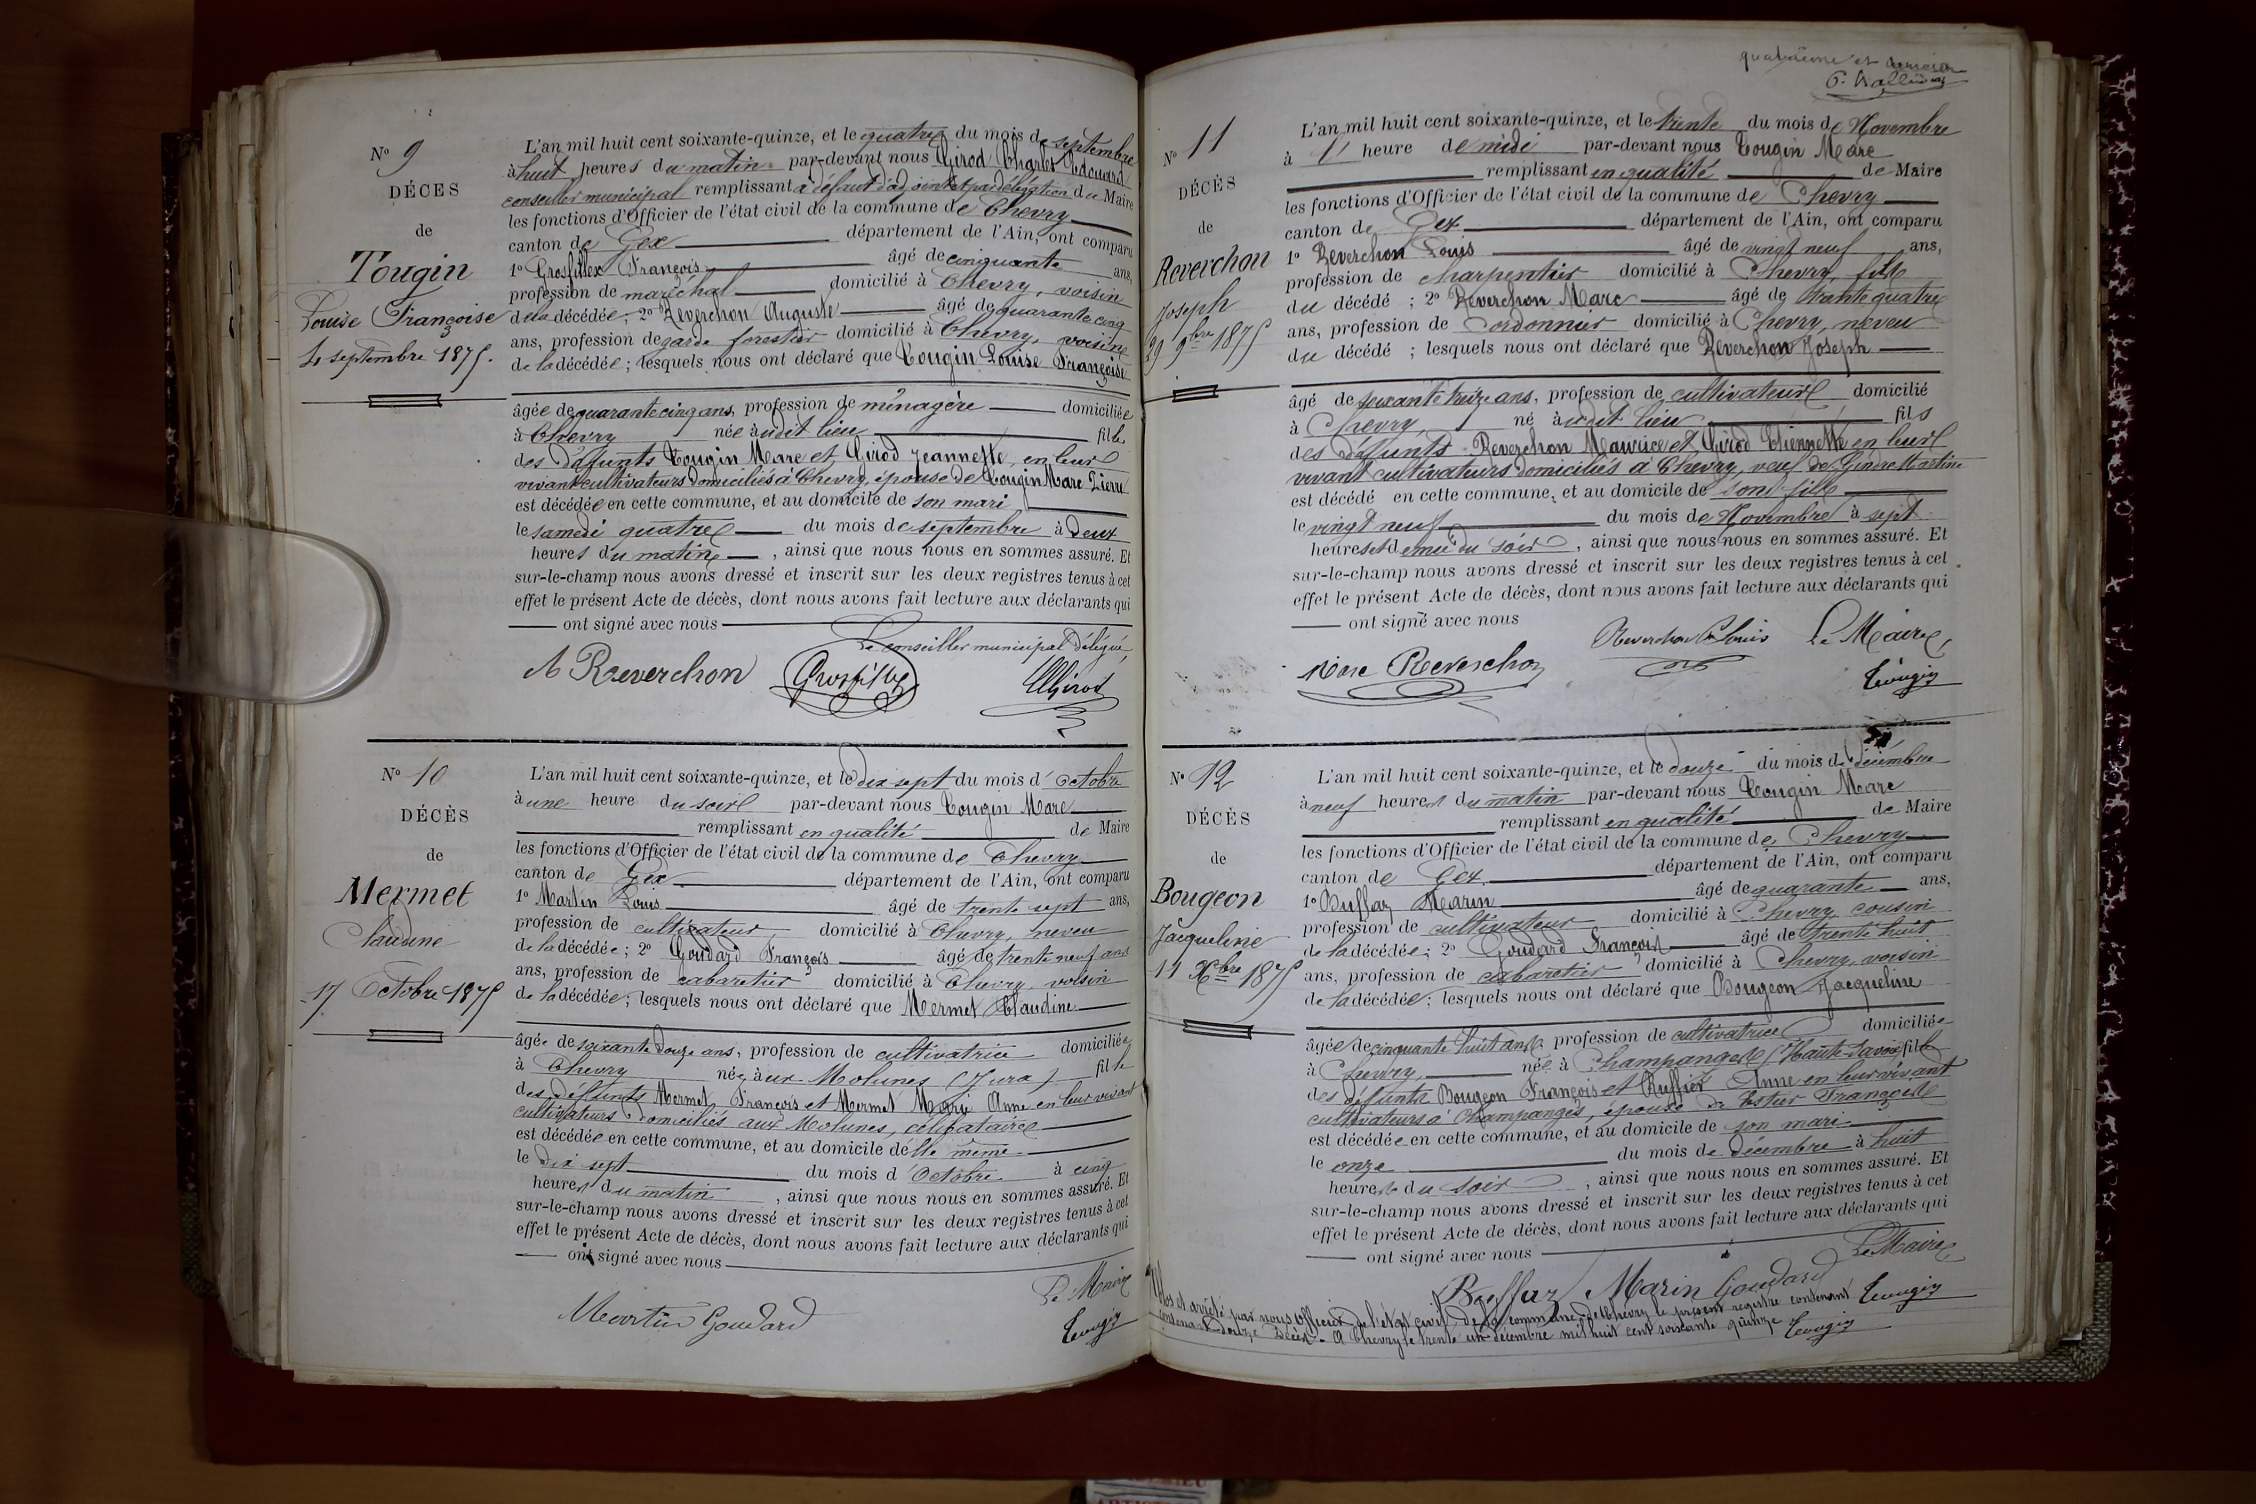 N° 9
DÉCES
de
Tougin
Louise Françoise
4 septembre 1875.
L'an mil huit cent soixante-quinze, et le quatre du mois de septembre
à huit heures du matin par-devant nous Girod Charles Edouard
conseiller municipal remplissant à défaut d'adjoint et par délégation du Maire
les fonctions d'Officier de l'état civil de la commune de Chevry
canton de Gex département de l'Ain, ont comparu
1° Grosfillex François âgé de cinquante ans,
profession de maréchal domicilié à Chevry, voisin
de la décédée; 2° Reverchon Auguste âgé de quarante cinq
ans, profession de garde forestier domicilié à Chevry, voisin
de la décédée; lesquels nous ont déclaré que Tougin Louise Françoise
âgée de quarante cinq ans, profession de ménagère domiciliée
à Chevry née audit lieu fille
des défunts Tougin Marc et Girod Jeannette, en leur
vivant cultivateurs domiciliés à Chevry, épouse de Tougin Marc Pierre
est décédée en cette commune, et au domicile de son mari
le samedi quatre du mois de septembre à deux
heures du matin, ainsi que nous nous en sommes assuré. Et
sur-le-champ nous avons dressé et inscrit sur les deux registres tenus à cet
effet le présent Acte de décès, dont nous avons fait lecture aux déclarants qui
ont signé avec nous
Le conseiller municipal délégué,
A Reverchon Grosfillex Girod
N° 10
DÉCÈS
de
Mermet
Claudine
17 Octobre 1875
L'an mil huit cent soixante-quinze, et le dix sept du mois d'octobre
à une heure du soir par-devant nous Tougin Marc
remplissant en qualité de Maire
les fonctions d'Officier de l'état civil de la commune de Chevry
canton de Gex département de l'Ain, ont comparu
1° Martin Louis âgé de trente sept ans,
profession de cultivateur domicilié à Chevry, neveu
de la décédée; 2° Goudard François âgé de trente neuf ans
ans, profession de cabaretier domicilié à Chevry, voisin
de la décédée; lesquels nous ont déclaré que Mermet Claudine
âgée de soixante douze ans, profession de cultivatrice domiciliée
à Chevry née aux Molunes (Jura) fille
des défunts Mermet François et Mermet Marie Anne en leur vivant
cultivateurs domiciliés aux Molunes, célibataire
est décédée en cette commune, et au domicile d'elle même
le dix sept du mois d'Octobre à cinq
heures du matin, ainsi que nous nous en sommes assuré. Et
sur-le-champ nous avons dressé et inscrit sur les deux registres tenus à cet
effet le présent Acte de décès, dont nous avons fait lecture aux déclarants qui
ont signé avec nous
Le Maire
Martin Goudard Tougin
quatrième et dernier
N° 11
DÉCÈS
de
Reverchon
Joseph
29 9bre 1875
L'an mil huit cent soixante-quinze, et le trente du mois de Novembre
à 1 heure de midi par-devant nous Tougin Marc
remplissant en qualité de Maire
les fonctions d'Officier de l'état civil de la commune de Chevry
canton de Gex département de l'Ain, ont comparu
1° Reverchon Louis âgé de vingt neuf ans,
profession de charpentier domicilié à Chevry, fils
du décédé; 2° Reverchon Marc âgé de trente quatre
ans, profession de Cordonnier domicilié à Chevry, neveu
du décédé; lesquels nous ont déclaré que Reverchon Joseph
âgé de soixante treize ans, profession de cultivateur domicilié
à Chevry né audit lieu fils
des défunts Reverchon Maurice et Girod Etiennette en leur
vivant cultivateurs domiciliés à Chevry, veuf de Gindre Martine
est décédé en cette commune, et au domicile de son fils
le vingt neuf du mois de Novembre à sept
heures et demie du soir, ainsi que nous nous en sommes assuré. Et
sur-le-champ nous avons dressé et inscrit sur les deux registres tenus à cet
effet le présent Acte de décès, dont nous avons fait lecture aux déclarants qui
ont signé avec nous
Reverchon Louis Le Maire,
Marc Reverchon Tougin
N° 12
DÉCÈS
de
Bougeon
Jacqueline
11 Xbre 1875
L'an mil huit cent soixante-quinze, et le douze du mois de décembre
à neuf heures du matin par-devant nous Tougin Marc
remplissant en qualité de Maire
les fonctions d'Officier de l'état civil de la commune de Chevry
canton de Gex département de l'Ain, ont comparu
1° Buffaz Marin âgé de quarante ans,
profession de cultivateur domicilié à Chevry cousin
de la décédée; 2° Goudard François âgé de trente huit
ans, profession de cabaretier domicilié à Chevry, voisin
de la décédée; lesquels nous ont déclaré que Bougeon Jacqueline
âgée de cinquante huit ans, profession de cultivatrice domiciliée
à Chevry, née à Champanges (Haute-Savoie) fille
des défunts Bougeon François et Ruffier Anne en leur vivant
cultivateurs à Champanges, épouse de Estier François
est décédée en cette commune, et au domicile de son mari
le onze du mois de décembre à huit
heures du soir, ainsi que nous nous en sommes assuré. Et
sur-le-champ nous avons dressé et inscrit sur les deux registres tenus à cet
effet le présent Acte de décès, dont nous avons fait lecture aux déclarants qui
ont signé avec nous
Le Maire
Buffaz Marin Goudard Tougin
Clos et arrêté par nous Officier de l'état civil de la commune de Chevry le présent registre contenant
contenant douze décès. A Chevry le trente un décembre mil huit cent soixante quinze Tougin